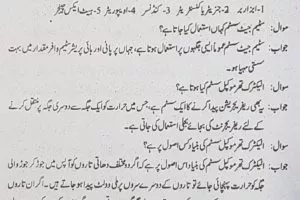 1- ابزاربر 2- جنریٹر یا کنسنٹریٹر 3- کنڈنسر 4- ایوپوریٹر 5- ہیٹ ایکس چینجر
سوال: سٹیم جیٹ سسٹم کہاں استعمال کیا جاتا ہے؟
جواب: سٹیم جیٹ سسٹم عموماً ایسی جگہوں پر استعمال ہوتا ہے، جہاں پر پانی اور ہائی پریشر سٹیم وافر مقدار میں بہت
سستی مہیا ہو۔
سوال: الیکٹرک تھرموکپل سسٹم کیا ہے؟
جواب: یہ بھی ریفریجریشن پیدا کرنے کا ایک سسٹم ہے، جس میں حرارت کو ایک جگہ سے دوسری جگہ پر منتقل کرنے
کے لئے ریفریجرنٹ کی بجائے بجلی استعمال کی جاتی ہے۔
سوال: الیکٹرک تھرموکپل سسٹم کی بنیاد کس اصول پر ہے؟
جواب: الیکٹرک تھرموکپل سسٹم کی بنیاد اس اصول پر ہے کہ اگر دو مختلف دھاتی تاروں کو آپس میں جوڑ کر جوڑ والی
جگہ کو حرارت پہنچائی جائے تو تاروں کے دوسرے سروں پر ملی وولٹ پیدا ہو جاتے ہیں۔ اگر ان تاروں